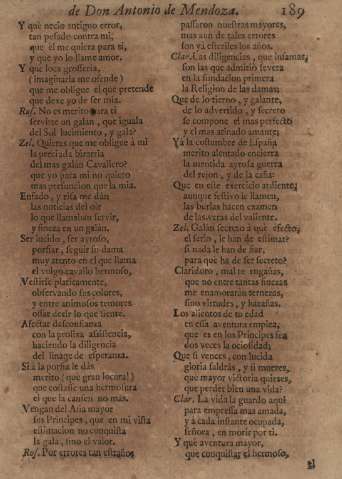 de Don Antonio de Mendoza. 189
Y què necio antiguo error,
tan pesado contra mi,
que èl me quiera para sì,
y que yo lo llame amor.
Y que loca grosseria,
(imaginarla me ofende)
que me obligue el que pretende
que dexe yo de ser mia.
Ros. No es merito para ti
servirte un galan, que iguala
del Sol lucimiento, y gala?
Zel. Quieres que me obligue à mi
la preciada bizarria
del mas galan Cavallero?
que yo para mi no quiero
mas presuncion que la mia.
Enfado, y risa me dàn
las noticias del oir
lo que llamaban servir,
y fineza en un galan.
Ser lucido, ser ayroso,
porfiar, seguir su dama
muy atento en el que llama
el vulgo cavallo hermoso,
Vestirse platicamente,
observando sus colores,
y entre animosos temores
ossar decir lo que siente.
Afectar desconfianza
con la prolixa assistencia,
haciendo la diligencia
del linage de esperanza.
Si à la porfia le dàs
merito (què gran locura!)
que costasse una hermosura
el que la cansen no màs.
Vengan del Asia mayor
sus Principes, que en mi vista
estimacion no conquista
la gala, sino el valor.
Ros. Por errores tan estraños
passaron nuestras mayores,
mas aun de tales errores
son ya esteriles los años.
Clar. Las diligencias, que infamas,
son las que admitiò severa
en la fundacion primera
la Religion de las damas:
Que de lo tierno, y galante,
de lo advertido, y secreto
se compone el mas perfecto
y el mas afinado amante;
Y à la costumbre de España
merito alentado encierra
la mentida ayrosa guerra
del rejon, y de la caña:
Que en este exercicio ardiente,
aunque festivo le llamen,
las burlas hacen examen
de las veras del valiente.
Zel. Galàn secreto à què efecto;
el serlo, le han de estimar?
si nada le han de fiar,
para què ha de ser secreto?
Claridoro, mal te engañas,
que no entre tantas finezas
me enamoraràn ternezas,
sino virtudes, y hazañas.
Los alientos de tu edad
en essa aventura emplea,
que es en los Principes fea
dos veces la ociosidad;
Que si vences, con lucida
gloria saldràs, y si mueres,
què mayor victoria quieres,
que perder bien una vida?
Clar. La vida la guardo aqui
para empressa mas amada,
y à cada instante ocupada,
señora, en morir por ti.
Y què aventura mayor,
que conquistar el hermoso,
el